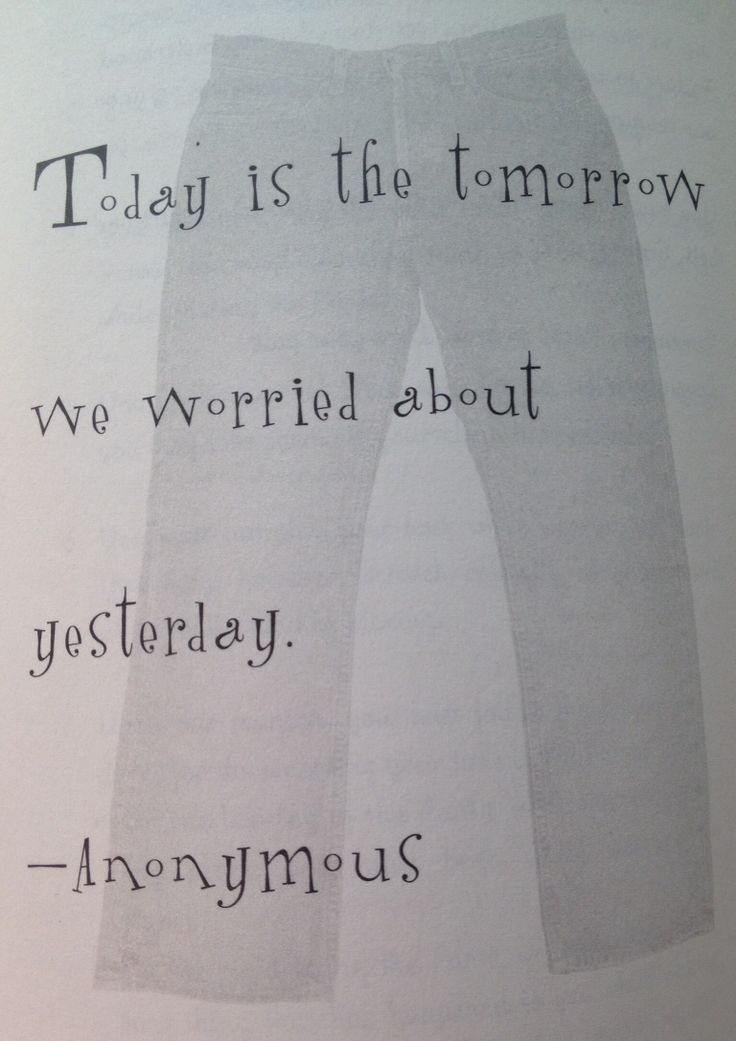 Today is the tomorrow
we worried about
yesterday.
—Anonymous